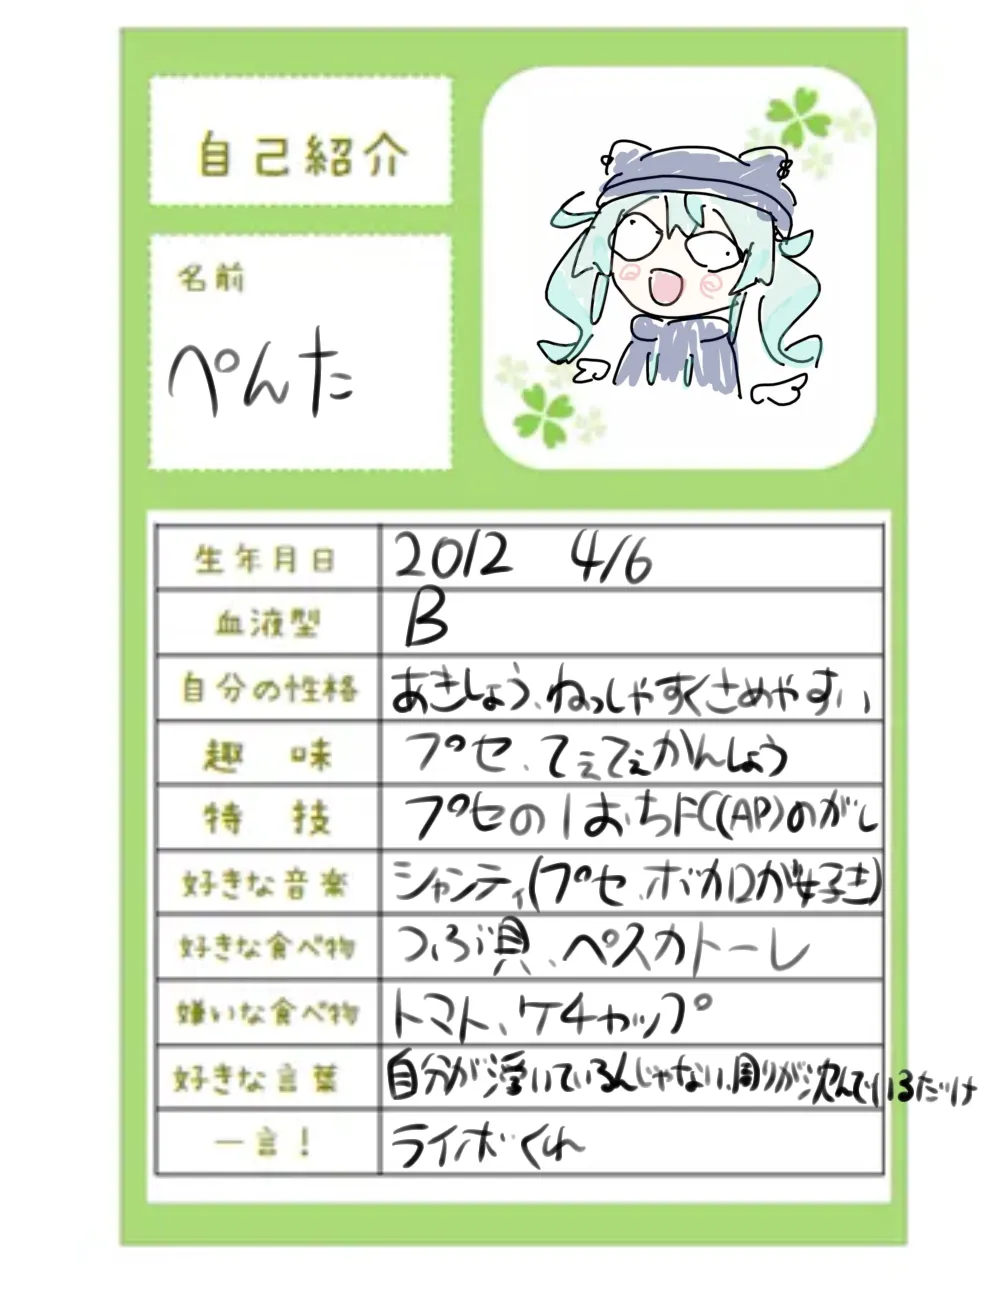 自己紹介
名前
ぺんた
生年月日 2012 4/6
血液型 B
自分の性格 あきしょう、ねっしやすくさめやすい
趣味 プセ、てぇてぇかんしょう
特技 プセの1おちFC(AP)のがし
好きな音楽 シャンティ(プセ、ボカロが好き)
好きな食べ物 つぶ貝、ペスカトーレ
嫌いな食べ物 トマト、ケチャップ
好きな言葉 自分が浮いているんじゃない、周りが沈んでいるだけ
一言! ライボくれ